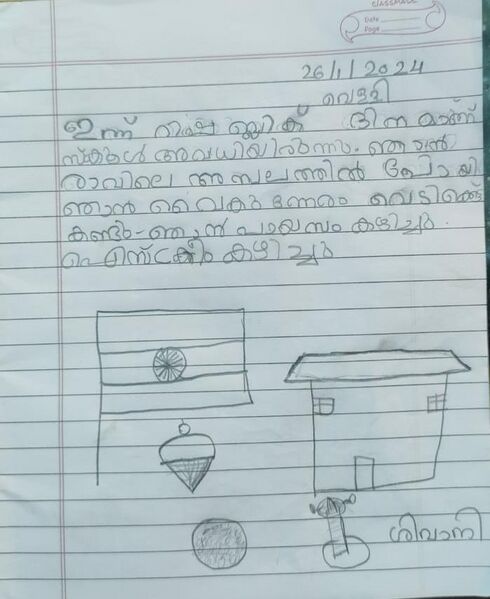 CLASSMATE
Date
Page
26/1/2024
വെള്ളി
ഇന്ന് റിപ്പബ്ലിക് ദിനമാണ്
സ്കൂൾ അവധിയിരുന്നു. ഞാൻ
രാവിലെ അമ്പലത്തിൽ പോയി
ഞാൻ വൈകുന്നേരം വെടിക്കെട്ട്
കണ്ടു. ഞാൻ പായസം കഴിച്ചു.
ഐസ്ക്രീം കഴിച്ചു
ശിവാനി